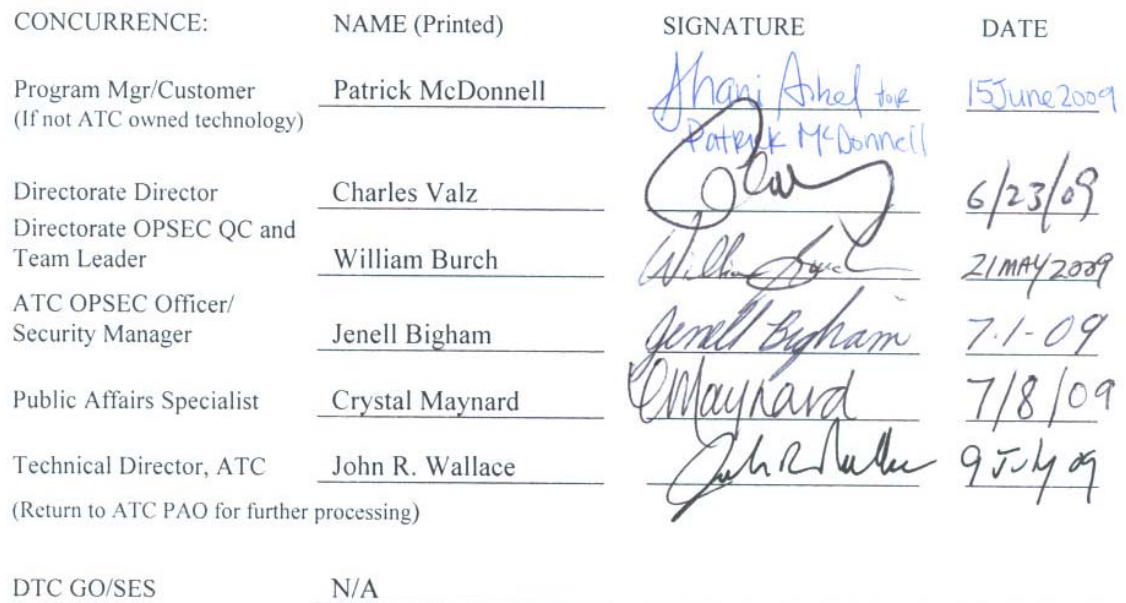 CONCURRENCE: NAME (Printed) SIGNATURE DATE
Program Mgr/Customer Patrick McDonnell for 15 June 2009
(If not ATC owned technology) Patrick McDonnell
Directorate Director Charles Valz 6/23/09
Directorate OPSEC QC and
Team Leader William Burch William Burch 21 MAY 2009
ATC OPSEC Officer/
Security Manager Jenell Bigham Jenell Bigham 7-1-09
Public Affairs Specialist Crystal Maynard CMaynard 7/8/09
Technical Director, ATC John R. Wallace John R Wallace 9 July 09
(Return to ATC PAO for further processing)
DTC GO/SES N/A